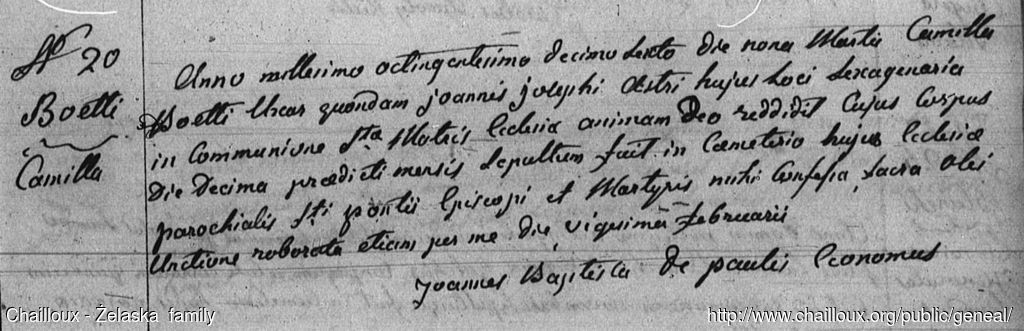 No 20
Boetti
Camilla
Anno millesimo octingentesimo decimo sexto die nona Martii Camilla
Boetti Uxor quondam joannis josephi Astri hujus Loci Sexagenaria
in Communione Stæ Matris Ecclesiæ animam Deo reddidit Cujus Corpus
Die Decima prædicti mensis Sepultum fuit in Cœmeterio hujus Ecclesiæ
parochialis Sti pontii Episcopi et Martyris mihi Confessa, sacra Olei
Unctione roborata etiam per me die vigesima februarii
Joannes Baptista De paulis Economus
Chailloux - Żelaska family
http://www.chailloux.org/public/geneal/